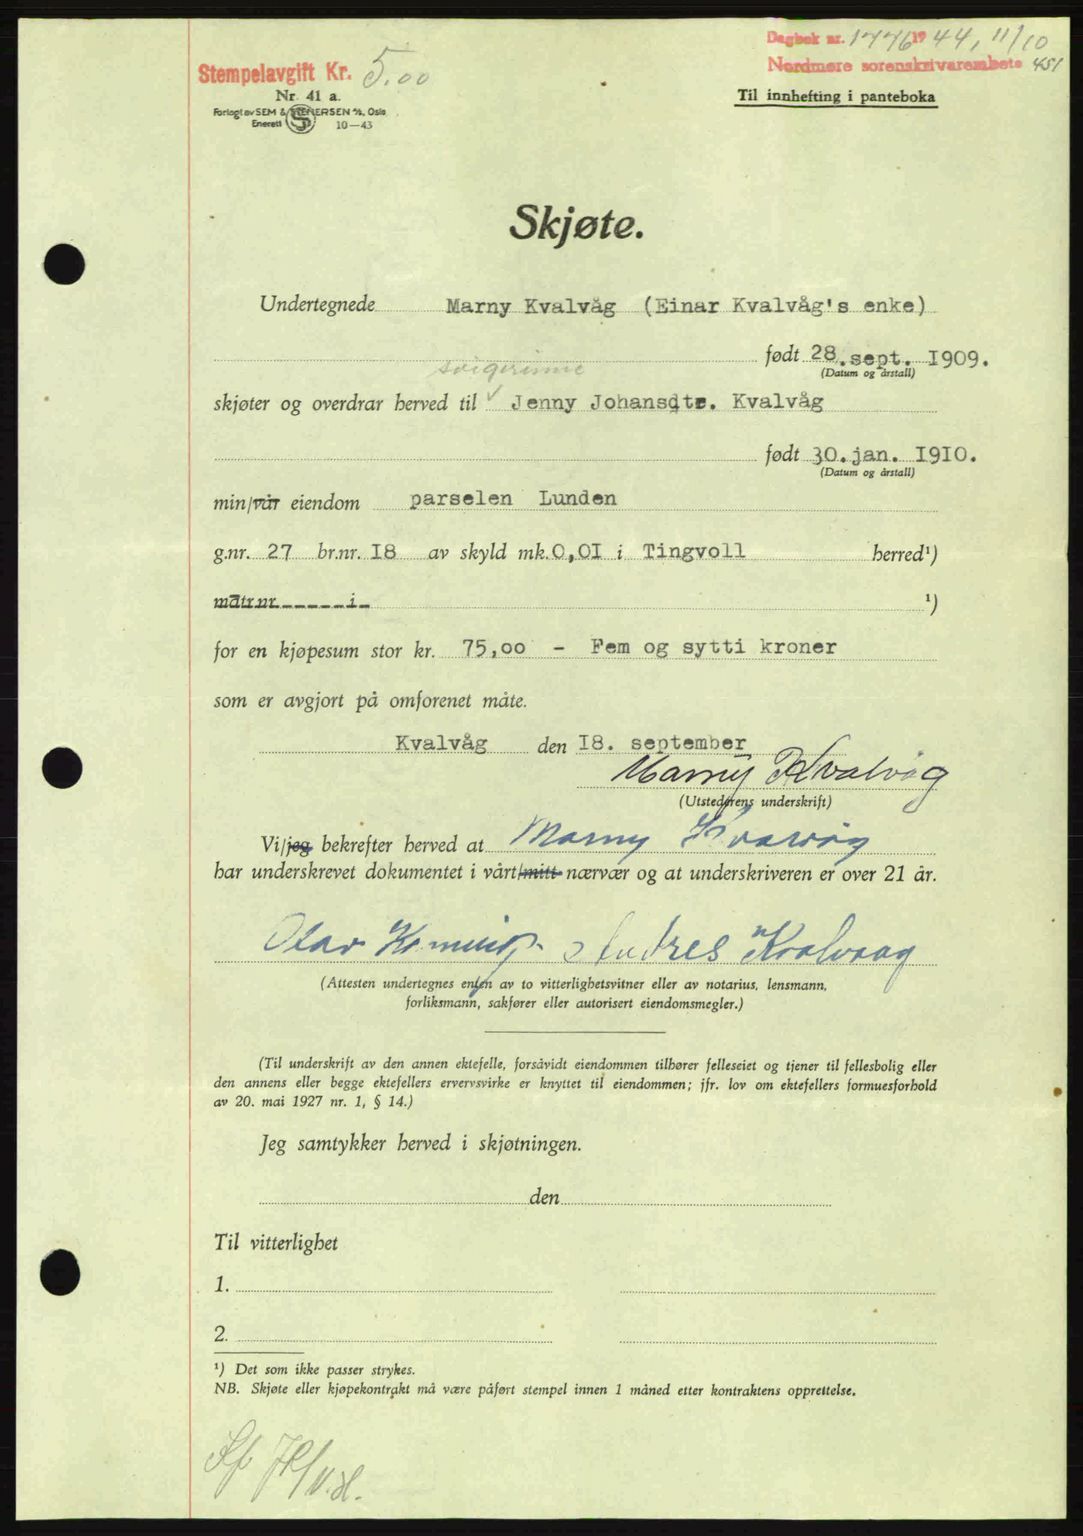 Dagbok nr. 1776 1944, 11/10
Stempelavgift Kr. 5.00
Nordmøre sorenskrivarembete 451
Nr. 41 a.
Til innhefting i panteboka
Forlagt av SEM & STENERSEN A/S, Oslo
Enerett 10-43
Skjøte.
Undertegnede Marny Kvalvåg (Einar Kvalvåg's enke)
født 28. sept. 1909.
(Datum og årstall)
svigerinne
skjøter og overdrar herved til ✓ Jenny Johansdtr. Kvalvåg
født 30. jan. 1910.
(Datum og årstall)
min/vår eiendom parselen Lunden
g.nr. 27 br.nr. 18 av skyld mk. 0,01 i Tingvoll herred¹)
matr.nr. i ¹)
for en kjøpesum stor kr. 75,00 - Fem og sytti kroner
som er avgjort på omforenet måte.
Kvalvåg den 18. september
Marny Kvalvåg
(Utstederens underskrift)
Vi/jeg bekrefter herved at Marny Kvalvåg
har underskrevet dokumentet i vårt/mitt nærvær og at underskriveren er over 21 år.
Olav Andres Kvalvaag
(Attesten undertegnes enten av to vitterlighetsvitner eller av notarius, lensmann,
forliksmann, sakfører eller autorisert eiendomsmegler.)
(Til underskrift av den annen ektefelle, forsåvidt eiendommen tilhører felleseiet og tjener til fellesbolig eller
den annens eller begge ektefellers ervervsvirke er knyttet til eiendommen; jfr. lov om ektefellers formuesforhold
av 20. mai 1927 nr. 1, § 14.)
Jeg samtykker herved i skjøtningen.
den
Til vitterlighet
1.
2.
¹) Det som ikke passer strykes.
NB. Skjøte eller kjøpekontrakt må være påført stempel innen 1 måned etter kontraktens opprettelse.